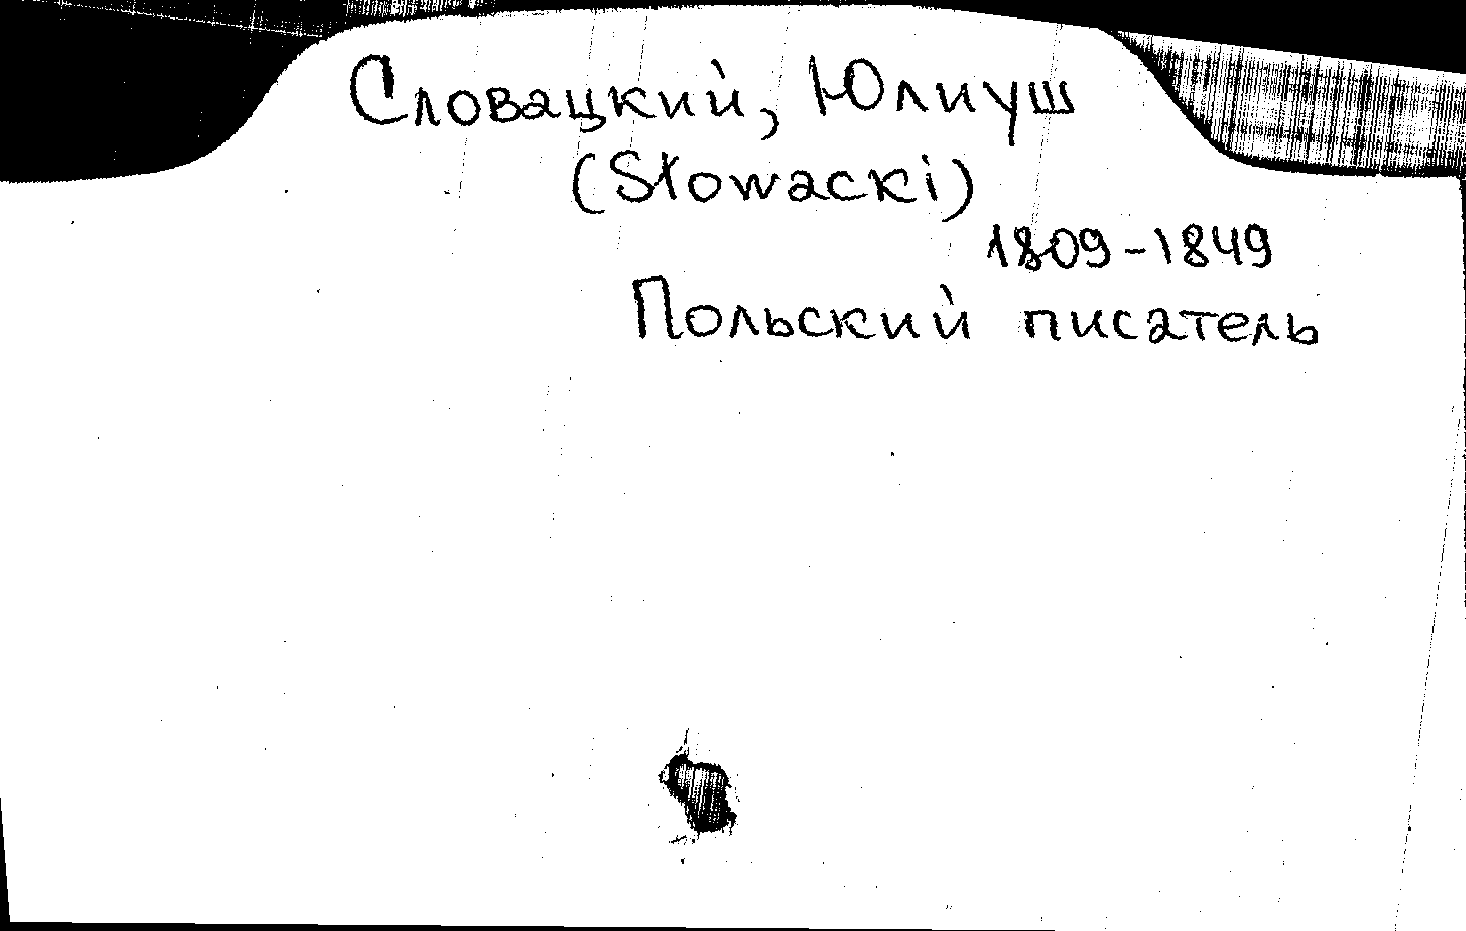 Словацкий, Юлиуш
(Słowacki)
1809-1849
Польский писатель